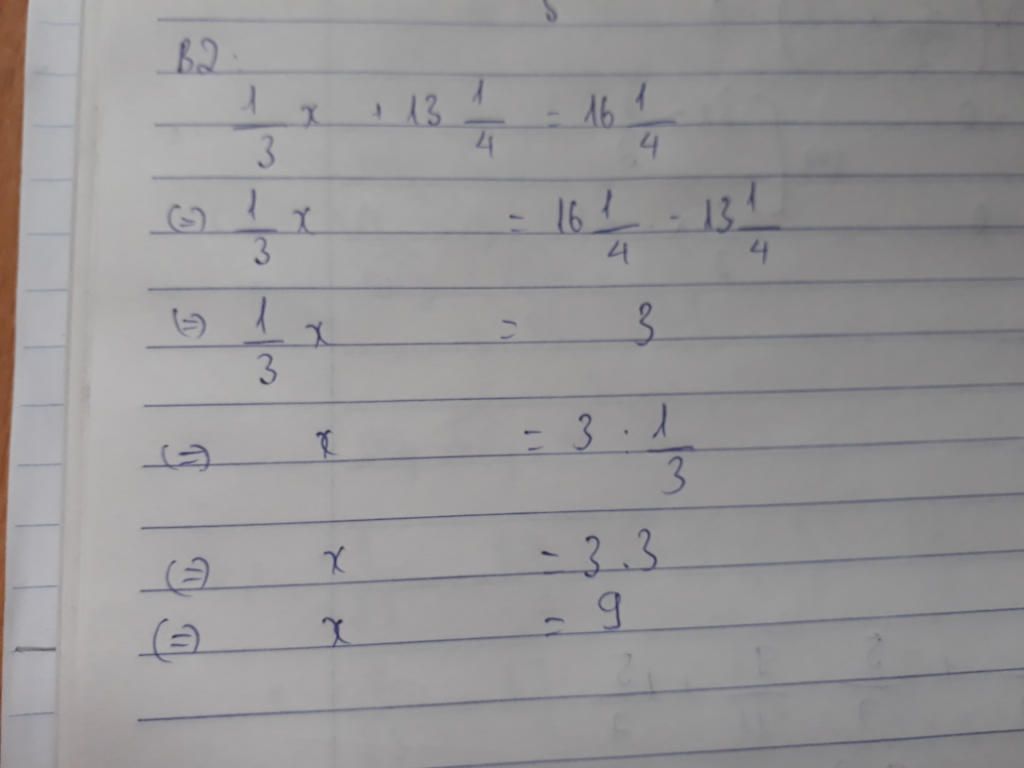 B2.
1/3 x + 13 1/4 = 16 1/4
(=) 1/3 x = 16 1/4 - 13 1/4
(=) 1/3 x = 3
(=) x = 3 . 1/3
(=) x = 3.3
(=) x = 9